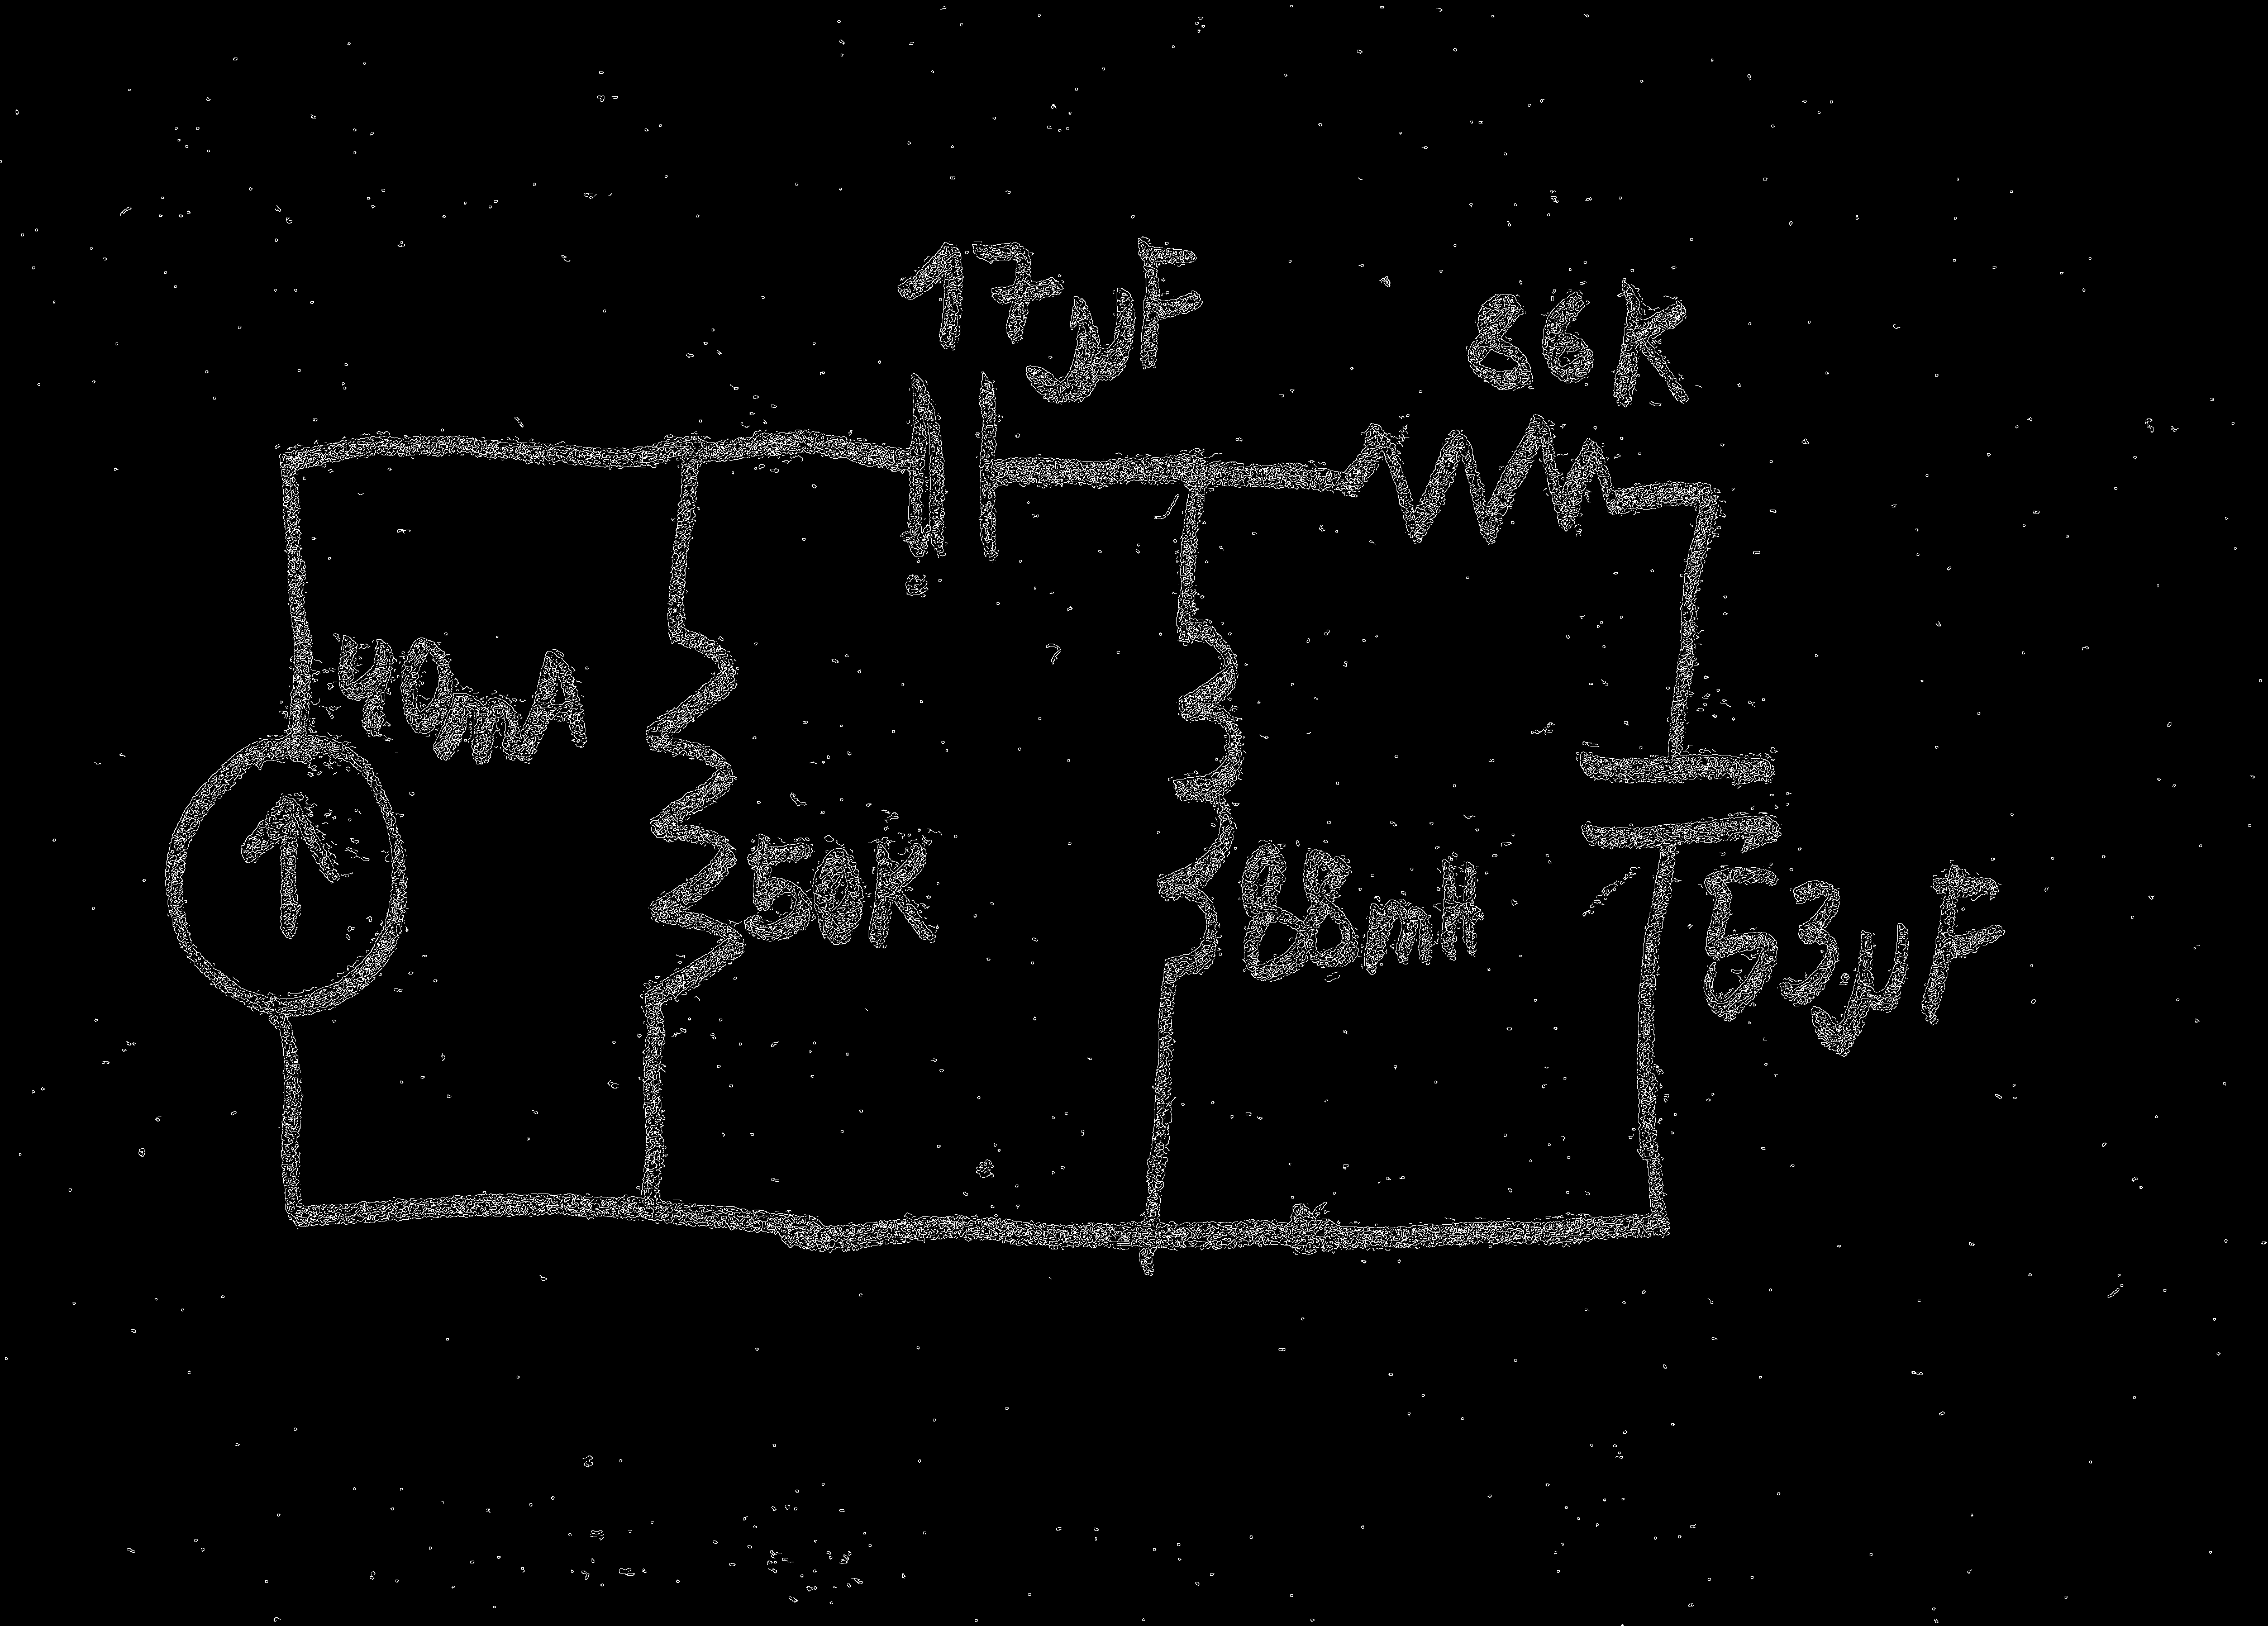 17µF
86K
40mA
50K
88mH
53µF